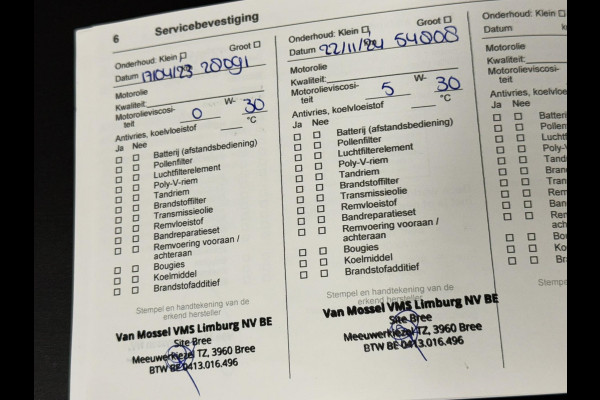 6
Servicebevestiging
Onderhoud: Klein Groot
Datum 17/04/23 28091
Motorolie
Kwaliteit:
Motorolieviscosi-
teit 0 W- 30
Antivries, koelvloeistof °C
Ja Nee
Batterij (afstandsbediening)
Pollenfilter
Luchtfilterelement
Poly-V-riem
Tandriem
Brandstoffilter
Transmissieolie
Remvloeistof
Bandreparatieset
Remvoering vooraan /
achteraan
Bougies
Koelmiddel
Brandstofadditief
Stempel en handtekening van de
erkend hersteller
Van Mossel VMS Limburg NV BE
Site Bree
Meeuwerkiezel TZ, 3960 Bree
BTW BE 0413.016.496
Onderhoud: Klein Groot
Datum 22/11/24 54008
Motorolie
Kwaliteit:
Motorolieviscosi-
teit 5 W- 30
Antivries, koelvloeistof °C
Ja Nee
Batterij (afstandsbediening)
Pollenfilter
Luchtfilterelement
Poly-V-riem
Tandriem
Brandstoffilter
Transmissieolie
Remvloeistof
Bandreparatieset
Remvoering vooraan /
achteraan
Bougies
Koelmiddel
Brandstofadditief
Stempel en handtekening van de
erkend hersteller
Van Mossel VMS Limburg NV BE
Site Bree
Meeuwerkiezel TZ, 3960 Bree
BTW BE 0413.016.496
Onderhoud: Klein
Datum
Motorolie
Kwaliteit:
Motorolieviscosi-
teit
Antivries, koelvloei
Ja Nee
Batteri
Pollen
Lucht
Poly-
Tand
Bran
Tran
Rem
Ban
Rem
ach
Bo
Ko
Br
Stemp